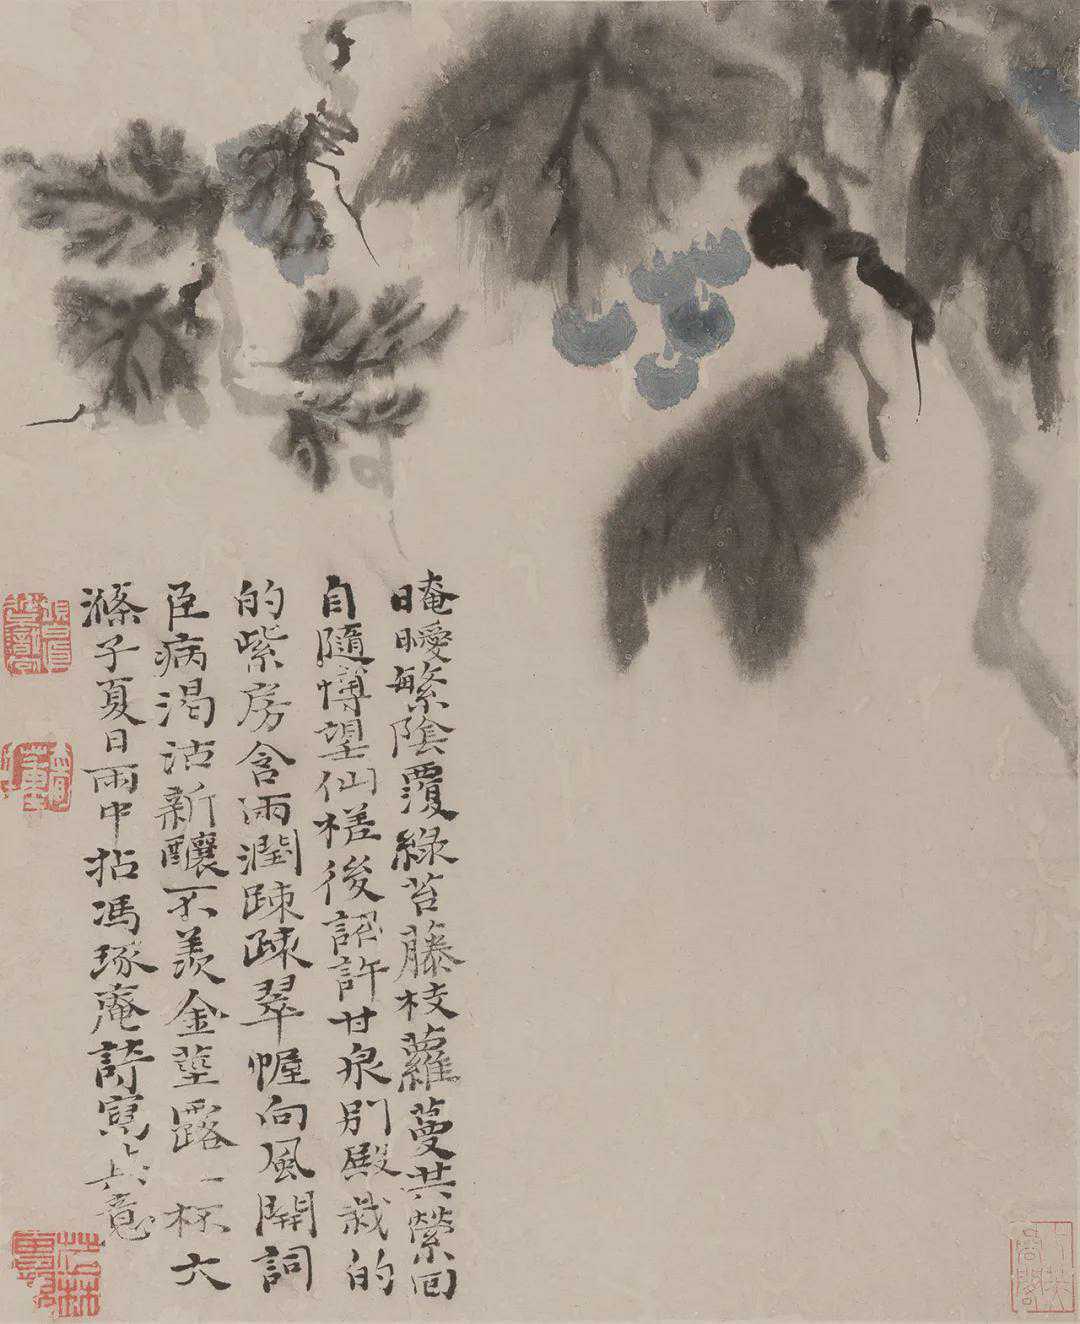 晻曖繁陰覆綠苔藤枝蘿蔓共縈囬
自隨愽望仙槎後詔許甘泉別殿栽的
的紫房含雨潤踈踈翠幄向風開詞
臣病渴沾新釀不羨金莖露一杯大
滌子夏日雨中拈馮琢庵詩寫其意